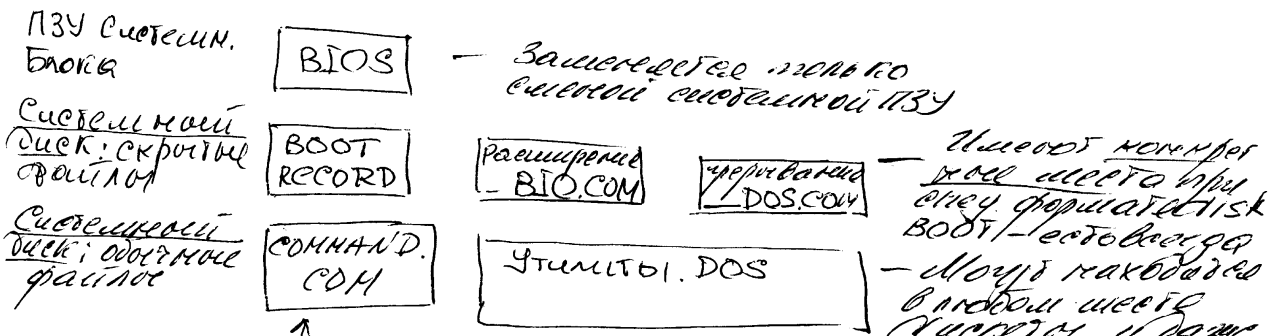 ПЗУ Системн.
Блока
BIOS
— Заменяется только
сменой системной ПЗУ
Системный
диск: скрытые
файлы
BOOT
RECORD
расширение
_BIO.COM
прерывание
_DOS.COM
— Имеют конкрет
ные места при
спец. формате disk
BOOT – есть всегда
Системный
диск: обычные
файлы
COMMAND.
COM
Утилиты. DOS
— Могут находиться
в любом месте
и даже